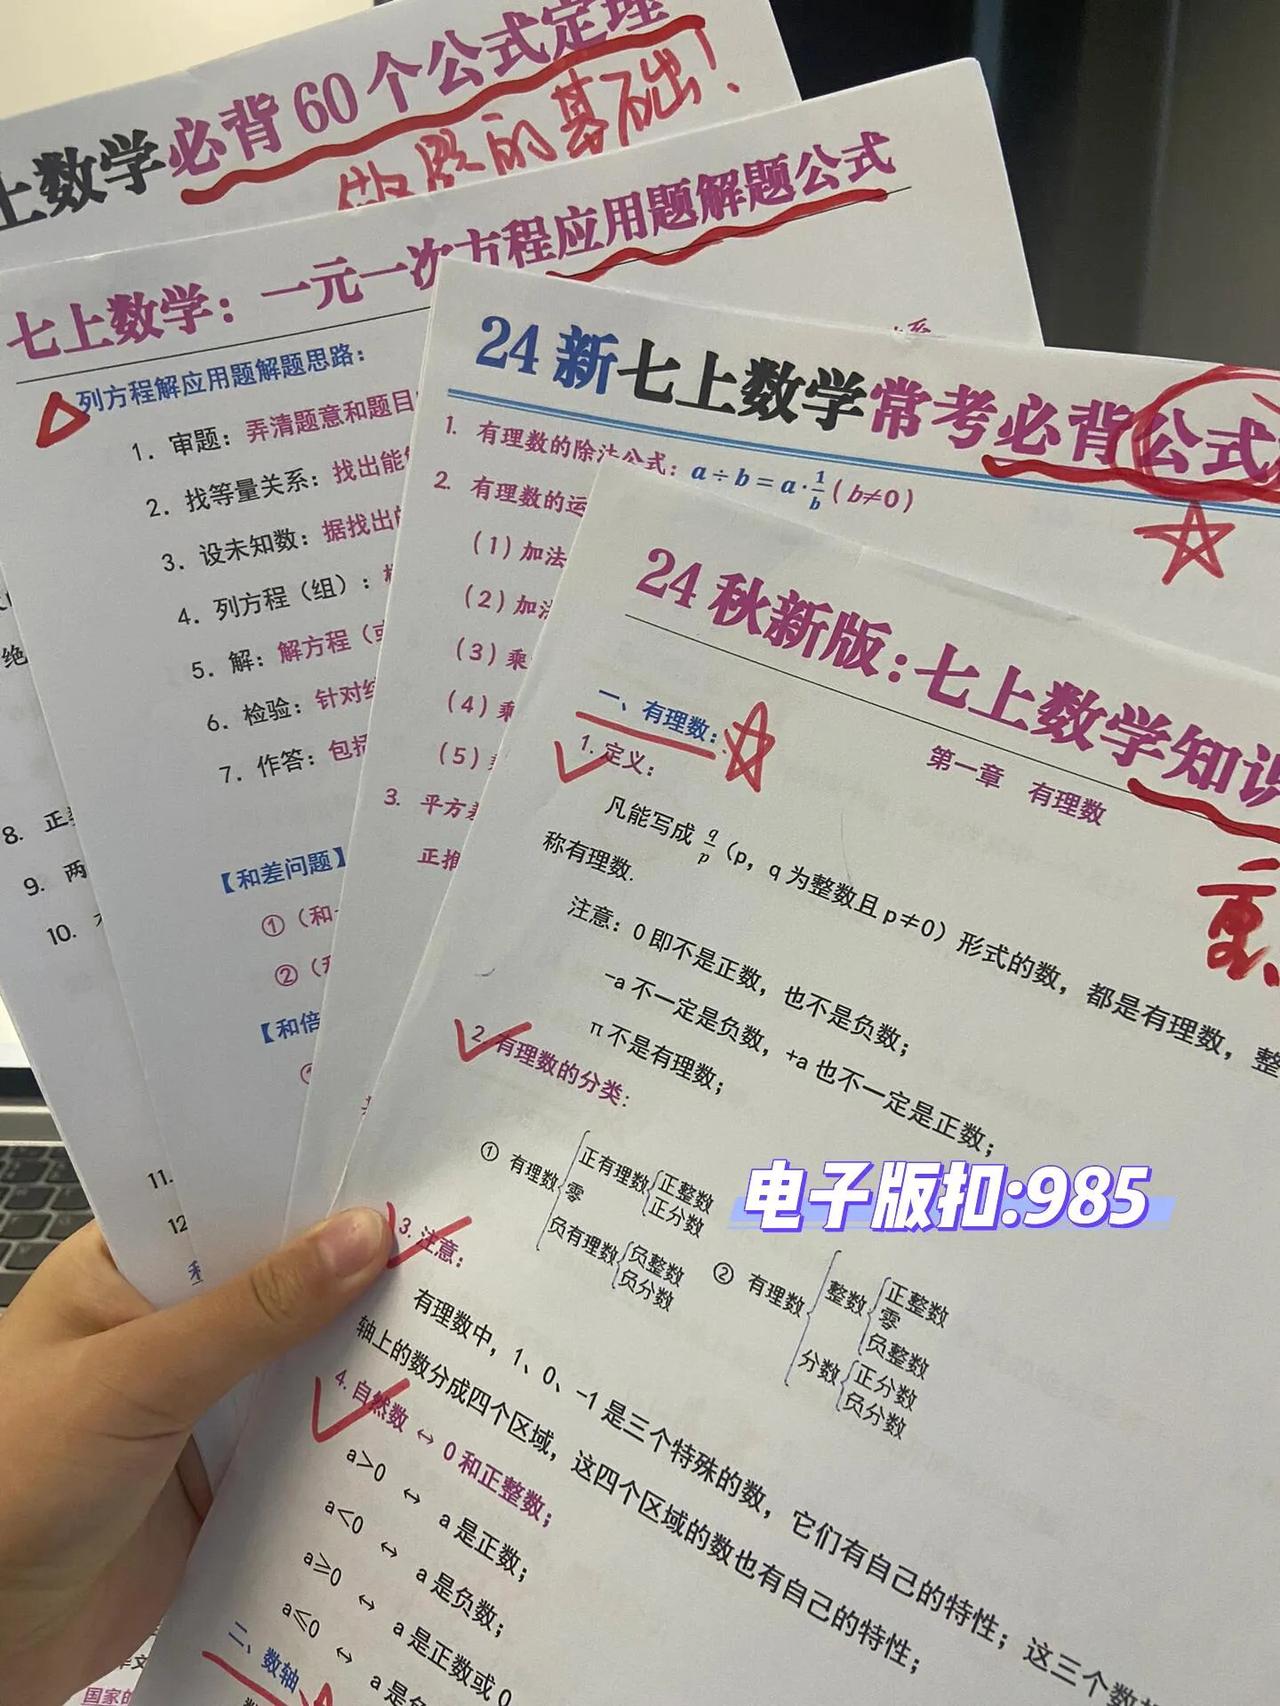 上数学必背60个公式定理
做题的基础！
七上数学：一元一次方程应用题解题公式
列方程解应用题解题思路：
1. 审题：弄清题意和题目
2. 找等量关系：找出能
3. 设未知数：据找出的
4. 列方程（组）：
5. 解：解方程（或
6. 检验：针对
7. 作答：包括
【和差问题】
①（和
②（
【和倍
绝
8. 正
9. 两
10.
11.
12
24新七上数学常考必背公式
1. 有理数的除法公式：a÷b=a·1/b（b≠0）
2. 有理数的运
（1）加法
（2）加法
（3）乘
（4）乘
（5）
3. 平方差
正推
24秋新版：七上数学知识
第一章 有理数
重
一、有理数：
1. 定义：
凡能写成 q/p（p，q为整数且p≠0）形式的数，都是有理数，整
称有理数.
注意：0即不是正数，也不是负数；
-a不一定是负数，+a也不一定是正数；
π不是有理数；
2 有理数的分类：
① 有理数 正有理数 正整数 正分数
零
负有理数 负整数 负分数
② 有理数 整数 正整数 零 负整数
分数 正分数 负分数
电子版扣:985
3. 注意：
有理数中，1、0、-1是三个特殊的数，它们有自己的特性；这三个数
轴上的数分成四个区域，这四个区域的数也有自己的特性；
4. 自然数 ↔ 0和正整数；
a>0 ↔ a是正数；
a<0 ↔ a是负数；
a≥0 ↔ a是正数或0
a≤0 ↔ a是
二、数轴
国家的